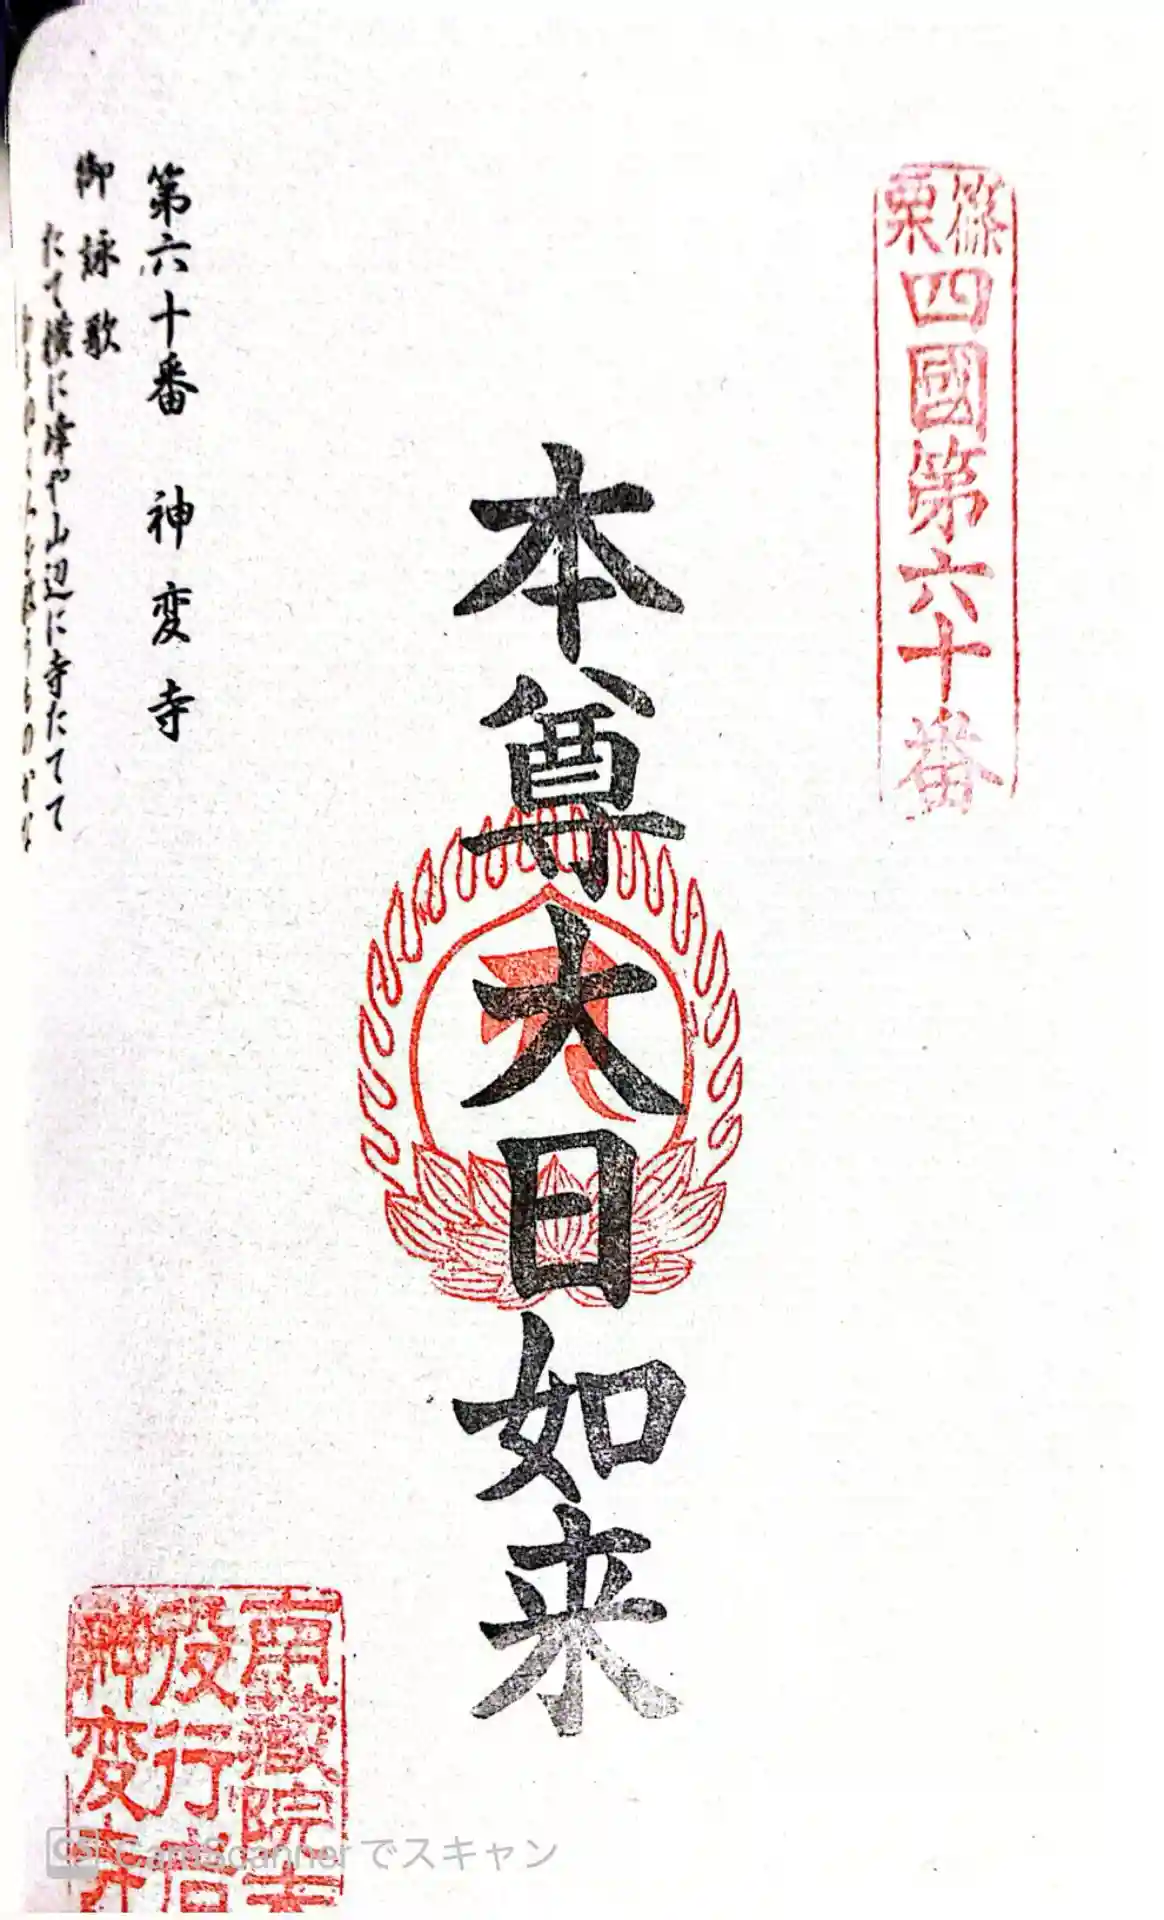 篠栗四國第六十番
本尊大日如来
第六十番 神変寺
御詠歌
たて横に峰や山辺に寺たてて
南蔵院
役行者
神変寺
CS CamScanner でスキャン